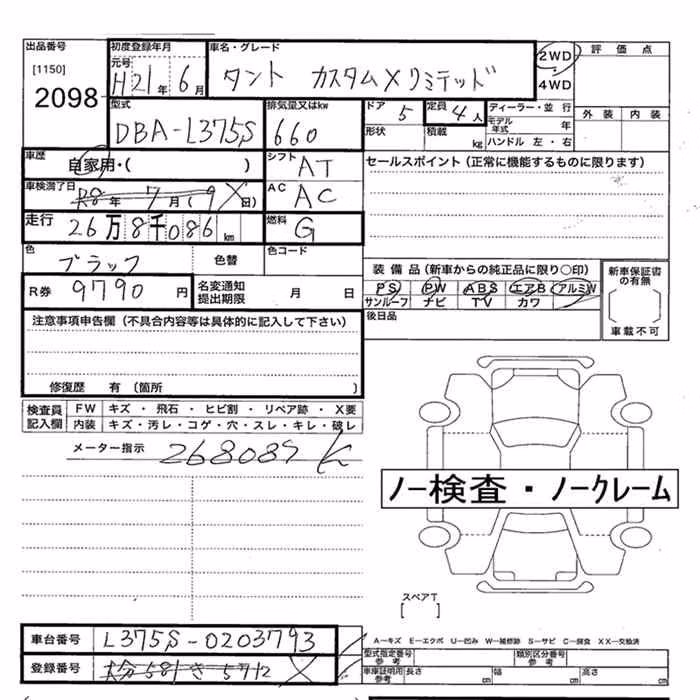 出品番号
[1150]
2098
初度登録年月
元号
H21年6月
車名・グレード
タント カスタムXリミテッド
2WD
4WD
評価点
外装 内装
型式
DBA-L375S
排気量又はkw
660
ドア 5
定員 4人
形状
積載 kg
ディーラー・並行
モデル年式 年
ハンドル 左・右
車歴
自家用・( )
シフト AT
セールスポイント(正常に機能するものに限ります)
車検満了日
R8年7月(9日)
AC AC
走行
26万8千086km
燃料 G
色
ブラック
色替
色コード
R券 9790円
名変通知
提出期限
月 日
装備品(新車からの純正品に限り○印)
PS PW ABS エアB アルミW
サンルーフ ナビ TV カワ
新車保証書
の有無
車載不可
後日品
注意事項申告欄(不具合内容等は具体的に記入して下さい)
修復歴 有(箇所 )
検査員
記入欄
FW キズ・飛石・ヒビ割・リペア跡・X要
内装 キズ・汚レ・コゲ・穴・スレ・キレ・破レ
メーター指示 268087 K
ノー検査・ノークレーム
スペアT
[ ]
車台番号 L375S-0203793
A−キズ E−エクボ U−凹み W−補修跡 S−サビ C−腐食 XX−交換済
登録番号 大分 581 き 5712
型式指定番号
参考
類別区分番号
参考
車庫証明用
参考
長さ cm 幅 cm 高さ cm